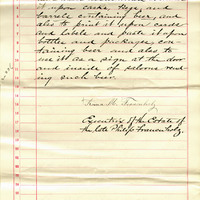 it upon casks, kegs, and
barrels containing beer, and
also to print it upon cards
and labels and paste it upon
bottles and packages, con-
taining beer and also to
use it as a sign at the door
and inside of saloons vend-
ing such beer.
M. Frauenholz
Executrix of the Estate of
the late Philip Frauenholz.